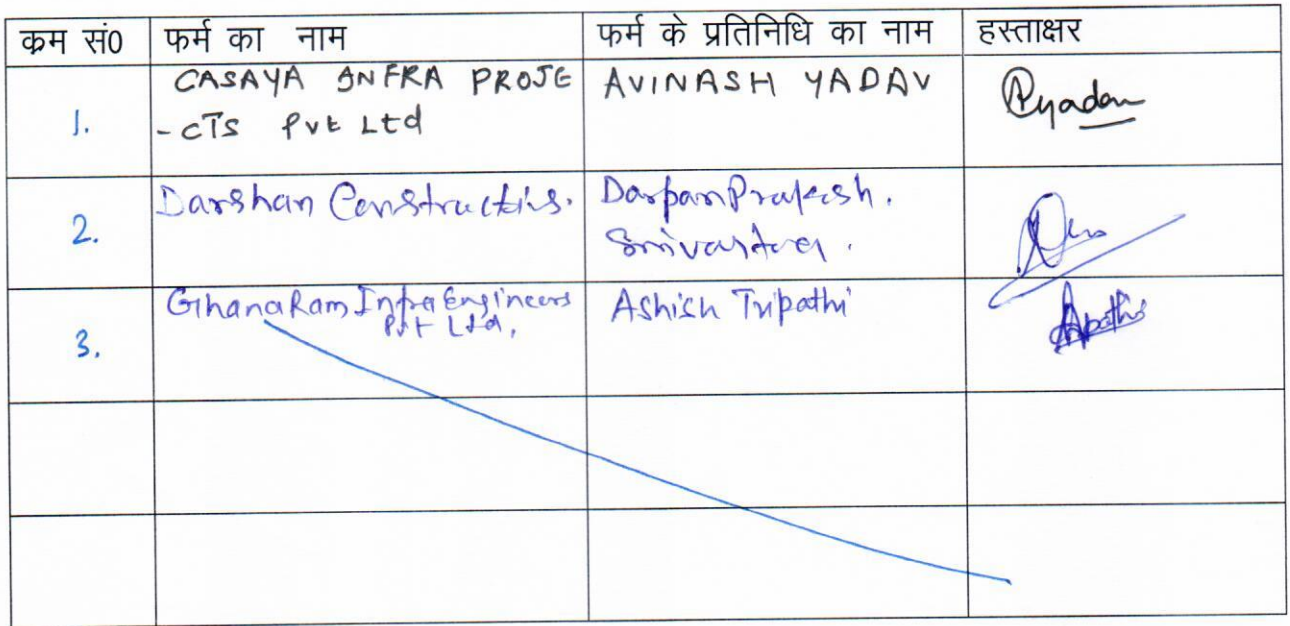 क्रम सं0 फर्म का नाम फर्म के प्रतिनिधि का नाम हस्ताक्षर
1. CASAYA INFRA PROJE AVINASH YADAV
-CTS Pvt Ltd
2. Darshan Constructions. Darpan Prakash.
Srivastava.
3. GhanaRam Infra Engineers Ashish Tripathi
Pvt Ltd.